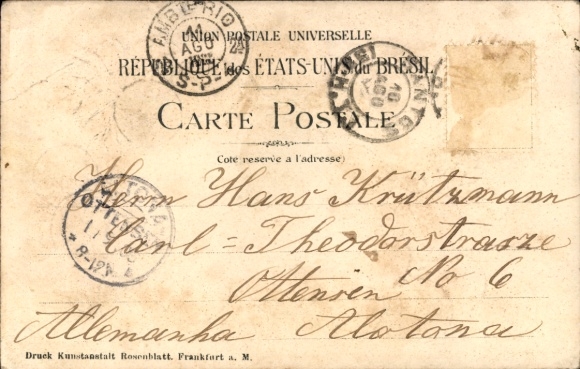 UNION POSTALE UNIVERSELLE
RÉPUBLIQUE dos ÉTATS-UNIS du BRÉSIL
CARTE POSTALE
Coté reservé a l'adresse)
AMB. RIO
AGO
S-P-
ALTONA
OTTENSEN
Herrn Hans Krützmann
Carl=Theodorstrasze
Ottensen No 6
Allemanha Alotona
Druck Kunstanstalt Rosenblatt. Frankfurt a. M.